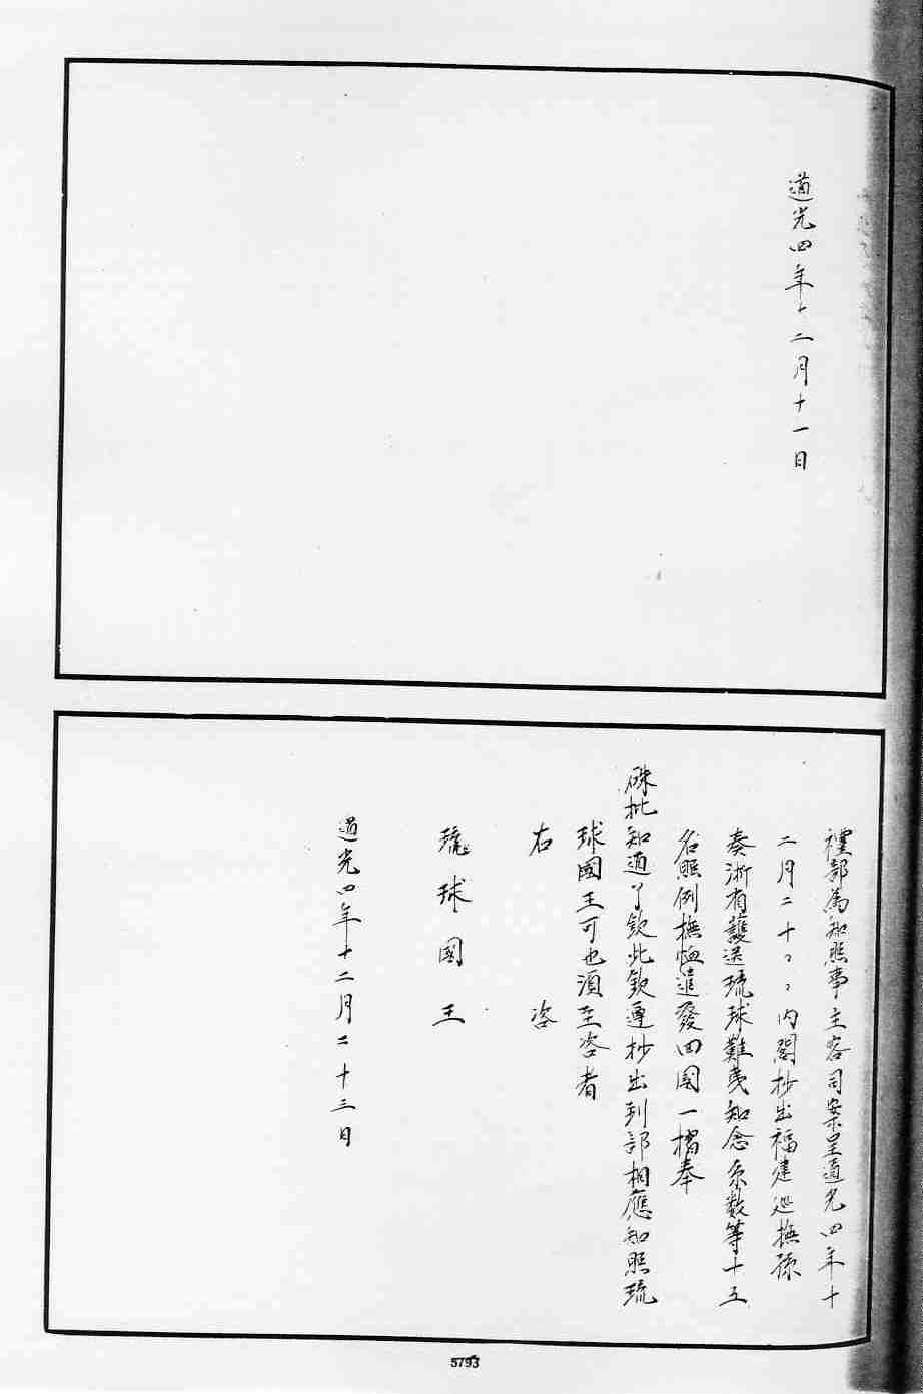 道光四年十二月十一日
禮部為知照事主客司案呈道光四年十
二月二十日內閣抄出福建巡撫孫
奏浙省護送琉球難夷知念糸数等十五
名照例撫恤遣發回國一摺奉
硃批知道了欽此欽遵抄出到部相應知照琉
球國王可也須至咨者
右 咨
琉球國王
道光四年十二月二十三日
5793